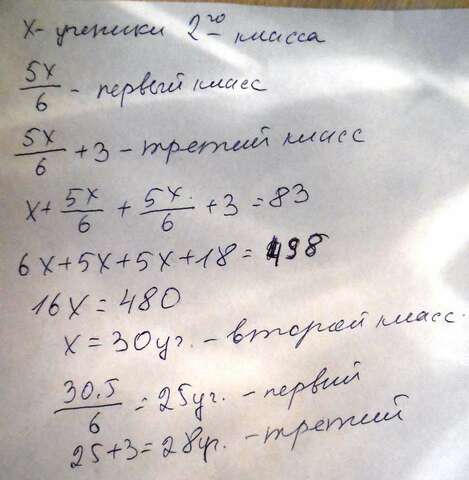 x - ученики 2го класса
5x/6 - первый класс
5x/6 + 3 - третий класс
x + 5x/6 + 5x/6 + 3 = 83
6x+5x+5x+18= 498
16x = 480
x = 30уч. - второй класс.
30.5/6 = 25уч. - первий
25+3=28уч. - третий